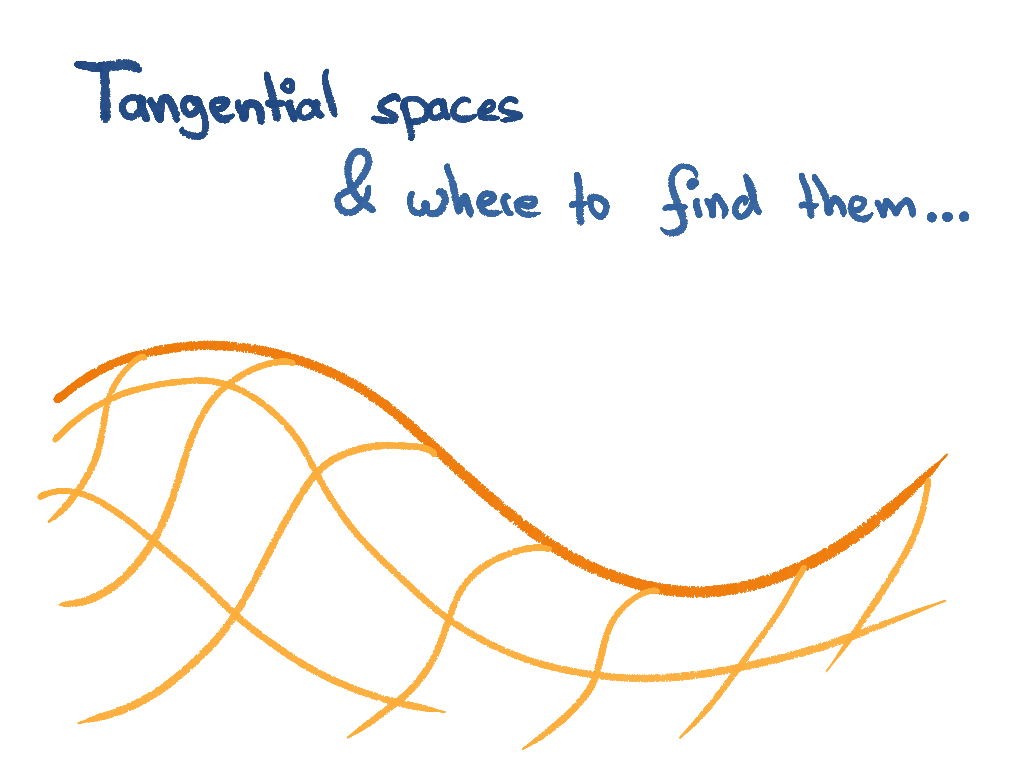 Tangential spaces
& where to find them...